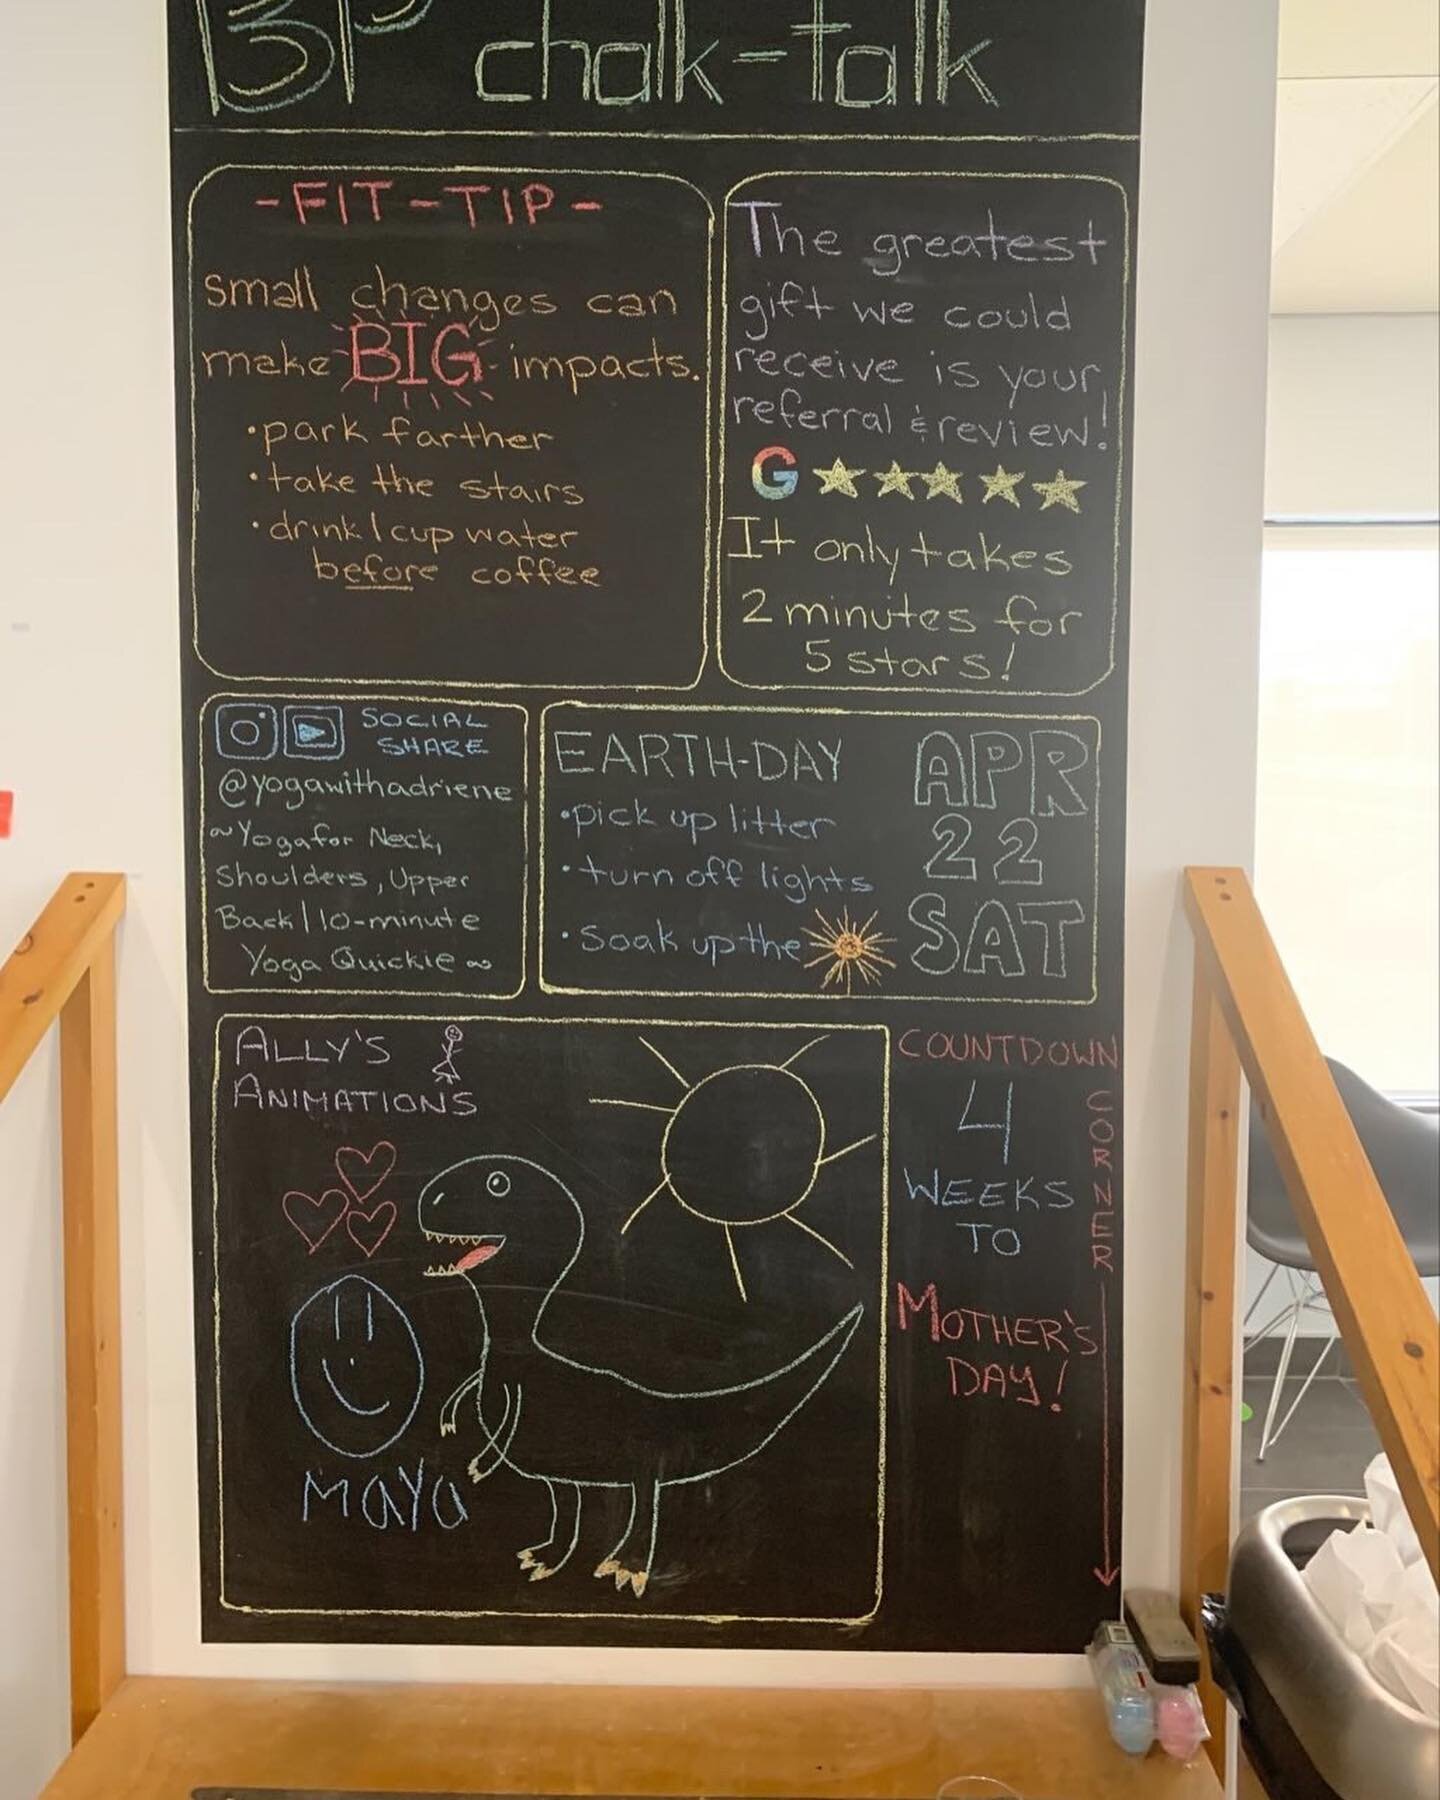 BP chalk-talk
-FIT-TIP-
small changes can
make BIG impacts.
•park farther
•take the stairs
•drink 1 cup water
before coffee
The greatest
gift we could
receive is your
referral & review!
G ★★★★★
It only takes
2 minutes for
5 stars!
SOCIAL
SHARE
@yogawithadriene
~Yoga for Neck,
Shoulders, Upper
Back | 10-minute
Yoga Quickie ~
EARTH-DAY
•pick up litter
•turn off lights
•Soak up the
APR
22
SAT
ALLY'S
ANIMATIONS
MAYA
COUNTDOWN
CORNER
4
WEEKS
TO
MOTHER'S
DAY!